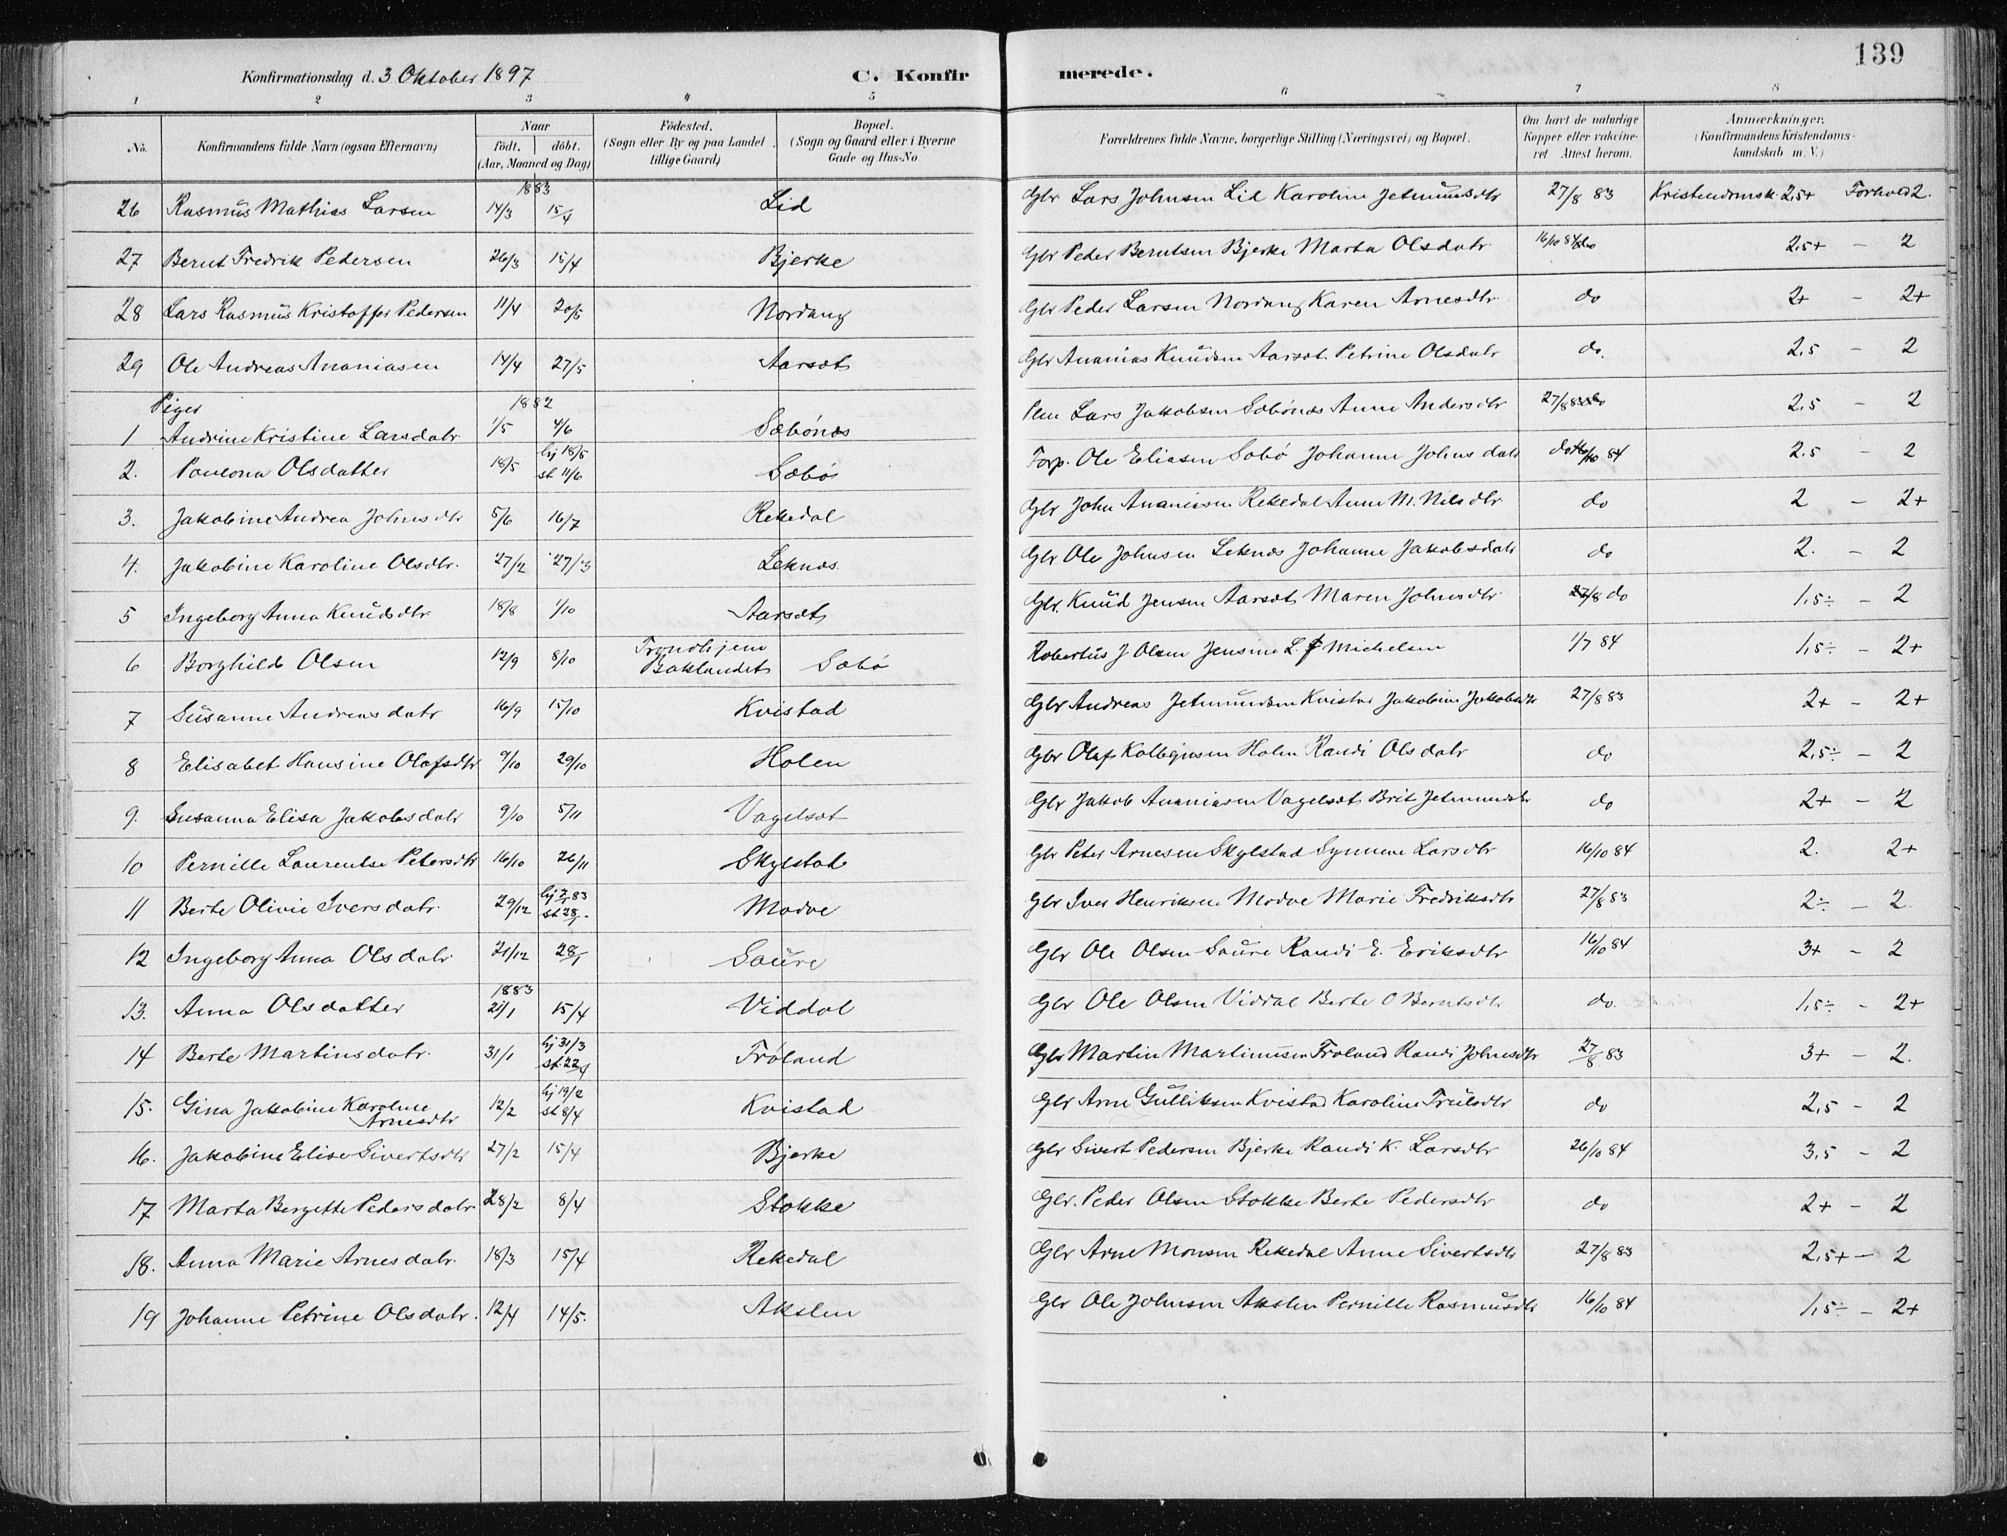 139
Konfirmationsdag d. 3 Oktober 1897 C. Konfirmerede.
1 2 3 4 5 6 7 8
No. Konfirmandens fulde Navn (ogsaa Efternavn) Naar födt. döbt. (Aar, Maaned og Dag) Födested. (Sogn eller By og paa Landet tillige Gaard) Bopæl. (Sogn og Gaard eller i Byerne Gade og Hus-No Forældrenes fulde Navne, borgerlige Stilling (Næringsvei) og Bopæl. Om havt de naturlige Kopper eller vakcineret Attest herom. Anmærkninger. (Konfirmandens Kristendomskundskab m. V.)
1883
26 Rasmus Mathias Larsen 14/3 15/4 Lid Gbr Lars Johnsen Lid Karoline Jetmundsdtr 27/8 83 Kristendomsk. 2,5+ Forhold 2.
27 Bernt Fredrik Pedersen 26/3 15/4 Bjerke Gbr Peder Berntsen Bjerke Marta Olsdatr 16/10 84 do 2,5+ - 2
28 Lars Rasmus Kristoffer Pedersen 11/4 20/5 Nordang Gbr Peder Larsen Nordang Karen Arnesdtr do 2+ - 2+
29 Ole Andreas Ananiasen 14/4 27/5 Aarsæt Gbr Ananias Knudsen Aarsæt Petrine Olsdatr do. 2,5 - 2
Piger 1882
1 Andrine Kristine Larsdatr 1/5 4/6 Sæbönæs Lars Jakobsen Sæbönæs Anne Andersdtr 27/8 83 do 2,5 - 2
2. Paulona Olsdatter 18/5 hj 18/5 st 11/6 Sæbö Forp. Ole Eliasen Sæbö Johanne Johnsdatr do 16/10 84 2,5 - 2
3. Jakobine Andrea Johnsdtr 5/6 16/7 Rekedal Gbr John Ananiasen Rekkedal Anne M. Nilsdtr do 2 - 2+
4. Jakobine Karoline Olsdtr. 27/2 27/3 Leknæs. Gbr Ole Johnsen Leknæs Johanne Jakobsdatr do 2. - 2
5 Ingeborg Anna Knudsdtr 18/8 1/10 Aarsæt Gbr. Knud Jensen Aarsæt Maren Johnsdtr 27/8 do 1,5÷ - 2
6 Borghild Olsen 12/9 8/10 Trondhjem Baklandet Sæbö Robertus J Olsen Jensine L. Michelsen 1/7 84 1,5÷ - 2+
7 Susanne Andreasdatr 16/9 15/10 Kvistad Gbr Andreas Jetmundsen Kvistad Jakobine Jakobsdtr 27/8 83 2+ - 2+
8 Elisabet Hansine Olafsdtr 9/10 29/10 Holen Gbr Olaf Kolbejnsen Holen Randi Olsdatr do 2,5÷ - 2
9. Susanna Elisa Jakobsdatr 9/10 5/11 Vagelsæt Gbr Jakob Ananiasen Vagelsæt Brit Jetmundsdtr do 2+ - 2
10 Pernille Laurentse Petersdtr 16/10 26/11 Skylstad Gbr Peter Arnesen Skylstad Synneve Larsdtr 16/10 84 2. 2+
11 Berte Olivie Iversdatr. 29/12 Modve Gbr Iver Henriksen Modve Marie Fredriksdtr 27/8 83 2÷ - 2.
12 Ingeborg Anna Olsdatr 21/12 28/1 Saure Gbr Ole Olsen Saure Randi E. Eriksdtr 16/10 84 3+ - 2
1883
13. Anna Olsdatter 21/1 15/4 Viddal Gbr Ole Olsen Viddal Berte O Berntsdtr do. 1,5÷ - 2+
14 Berte Martinsdatr. 31/1 hj 31/3 st. 22/4 Tröland Gbr Martin Martinusen Tröland Randi Johnsdtr 27/8 83 3+ - 2.
15. Gina Jakobine Karoline Arnesdtr 12/2 hj 19/2 st 8/4 Kvistad Gbr Arne Gulliksen Kvistad Karoline Trulsdtr do 2,5 - 2
16. Jakobine Elise Sivertsdtr 27/2 15/4 Bjerke Gbr Sivert Pedersen Bjerke Randi K. Larsdtr 26/10 84 3,5 - 2
17 Marta Bergette Pedersdatr. 28/2 8/4 Stokke Gbr. Peder Olsen Stokke Berte Pedersdtr do 2+ - 2
18. Anna Marie Arnesdatr. 18/3 15/4 Rekedal Gbr Arne Monsen Rekedal Anne Sivertsdtr 27/8 83 2,5+ - 2
19 Johanne Petrine Olsdatr. 12/4 14/5. Akslen Gbr Ole Johnsen Akslen Pernille Rasmusdtr 16/10 84 1,5÷ - 2+